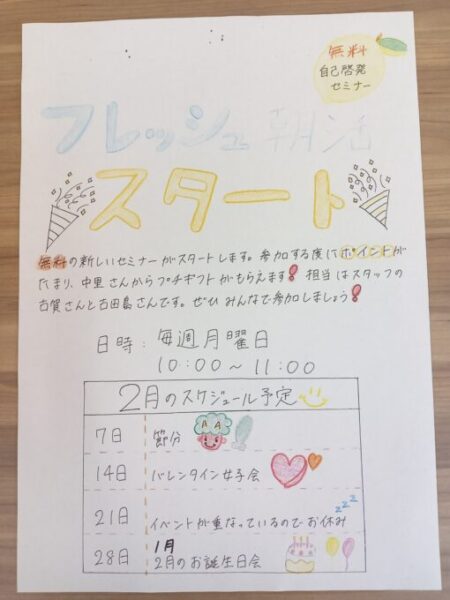 無料
自己啓発
セミナー
フレッシュ朝活
スタート
無料の新しいセミナーがスタートします。参加する度にポイントが
たまり、中里さんからプチギフトがもらえます！担当はスタッフの
古賀さんと古田島さんです。ぜひみんなで参加しましょう！
日時：毎週月曜日
10:00～11:00
2月のスケジュール予定
7日 節分
14日 バレンタイン女子会
21日 イベントが重なっているのでお休み zzz
28日 1月
2月のお誕生日会